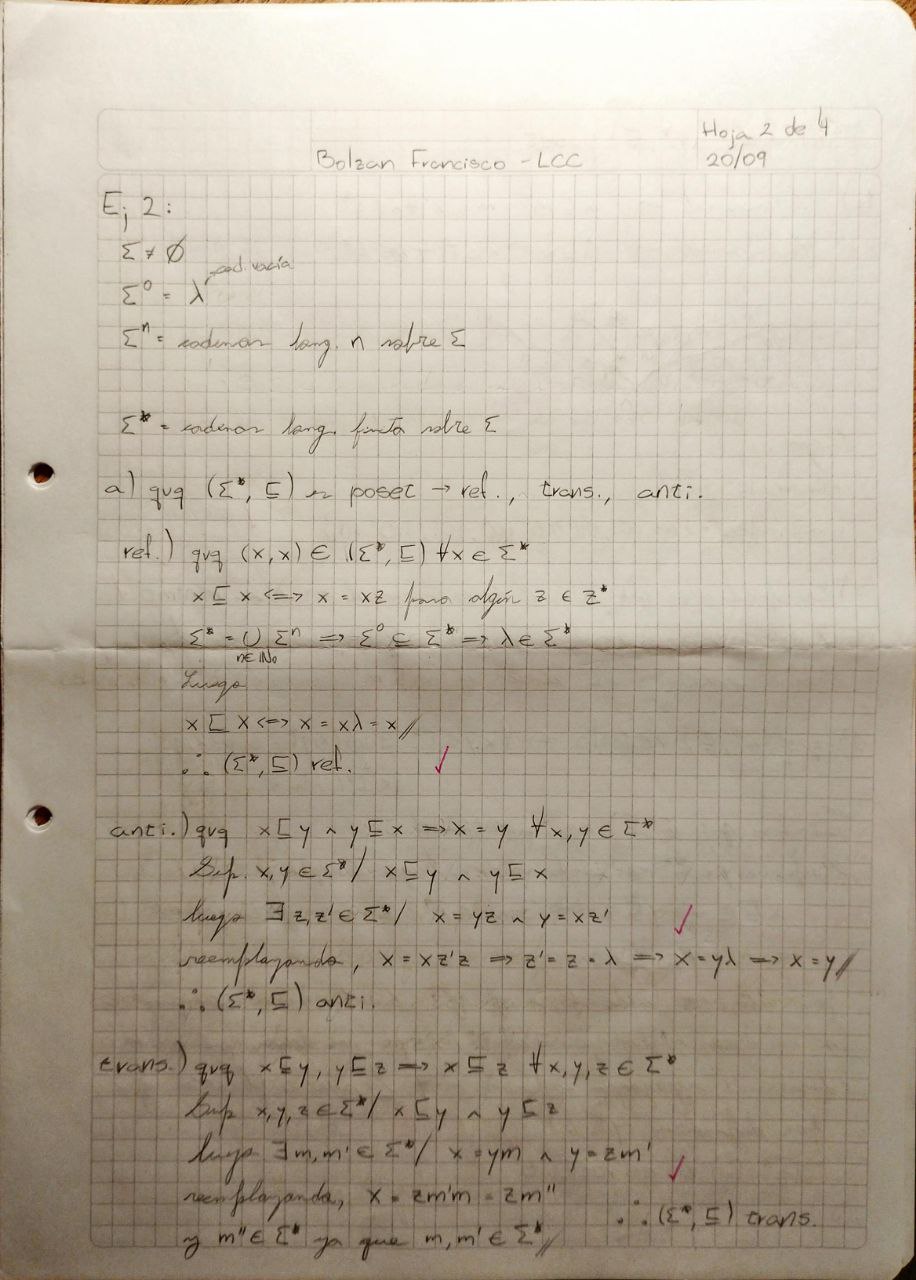 Hoja 2 de 4
Bolzan Francisco - LCC 20/09
Ej 2:
Σ ≠ ∅
Σ⁰ = λ cad. vacía
Σⁿ = cadenas long. n sobre Σ
Σ* = cadenas long. finita sobre Σ
a) qvq (Σ*, ⊑) es poset → ref., trans., anti.
ref.) qvq (x,x) ∈ (Σ*, ⊑) ∀x ∈ Σ*
x ⊑ x <=> x = xz para algún z ∈ z*
Σ* = ∪ Σⁿ => Σ⁰ ⊆ Σ* => λ ∈ Σ*
n∈ℕ₀
Luego
x ⊑ x <=> x = xλ = x //
∴ (Σ*, ⊑) ref. ✓
anti.) qvq x ⊑ y ∧ y ⊑ x => x = y ∀x,y ∈ Σ*
Sup. x,y ∈ Σ* / x ⊑ y ∧ y ⊑ x
luego ∃ z,z' ∈ Σ* / x = yz ∧ y = xz' ✓
reemplazando, x = xz'z => z' = z = λ => x = yλ => x = y //
∴ (Σ*, ⊑) anti.
trans.) qvq x ⊑ y, y ⊑ z => x ⊑ z ∀x,y,z ∈ Σ*
Sup x,y,z ∈ Σ* / x ⊑ y ∧ y ⊑ z
luego ∃ m,m' ∈ Σ* / x = ym ∧ y = zm'
reemplazando, x = zm'm = zm'' ✓
y m'' ∈ Σ* ya que m,m' ∈ Σ* // ∴ (Σ*, ⊑) trans.